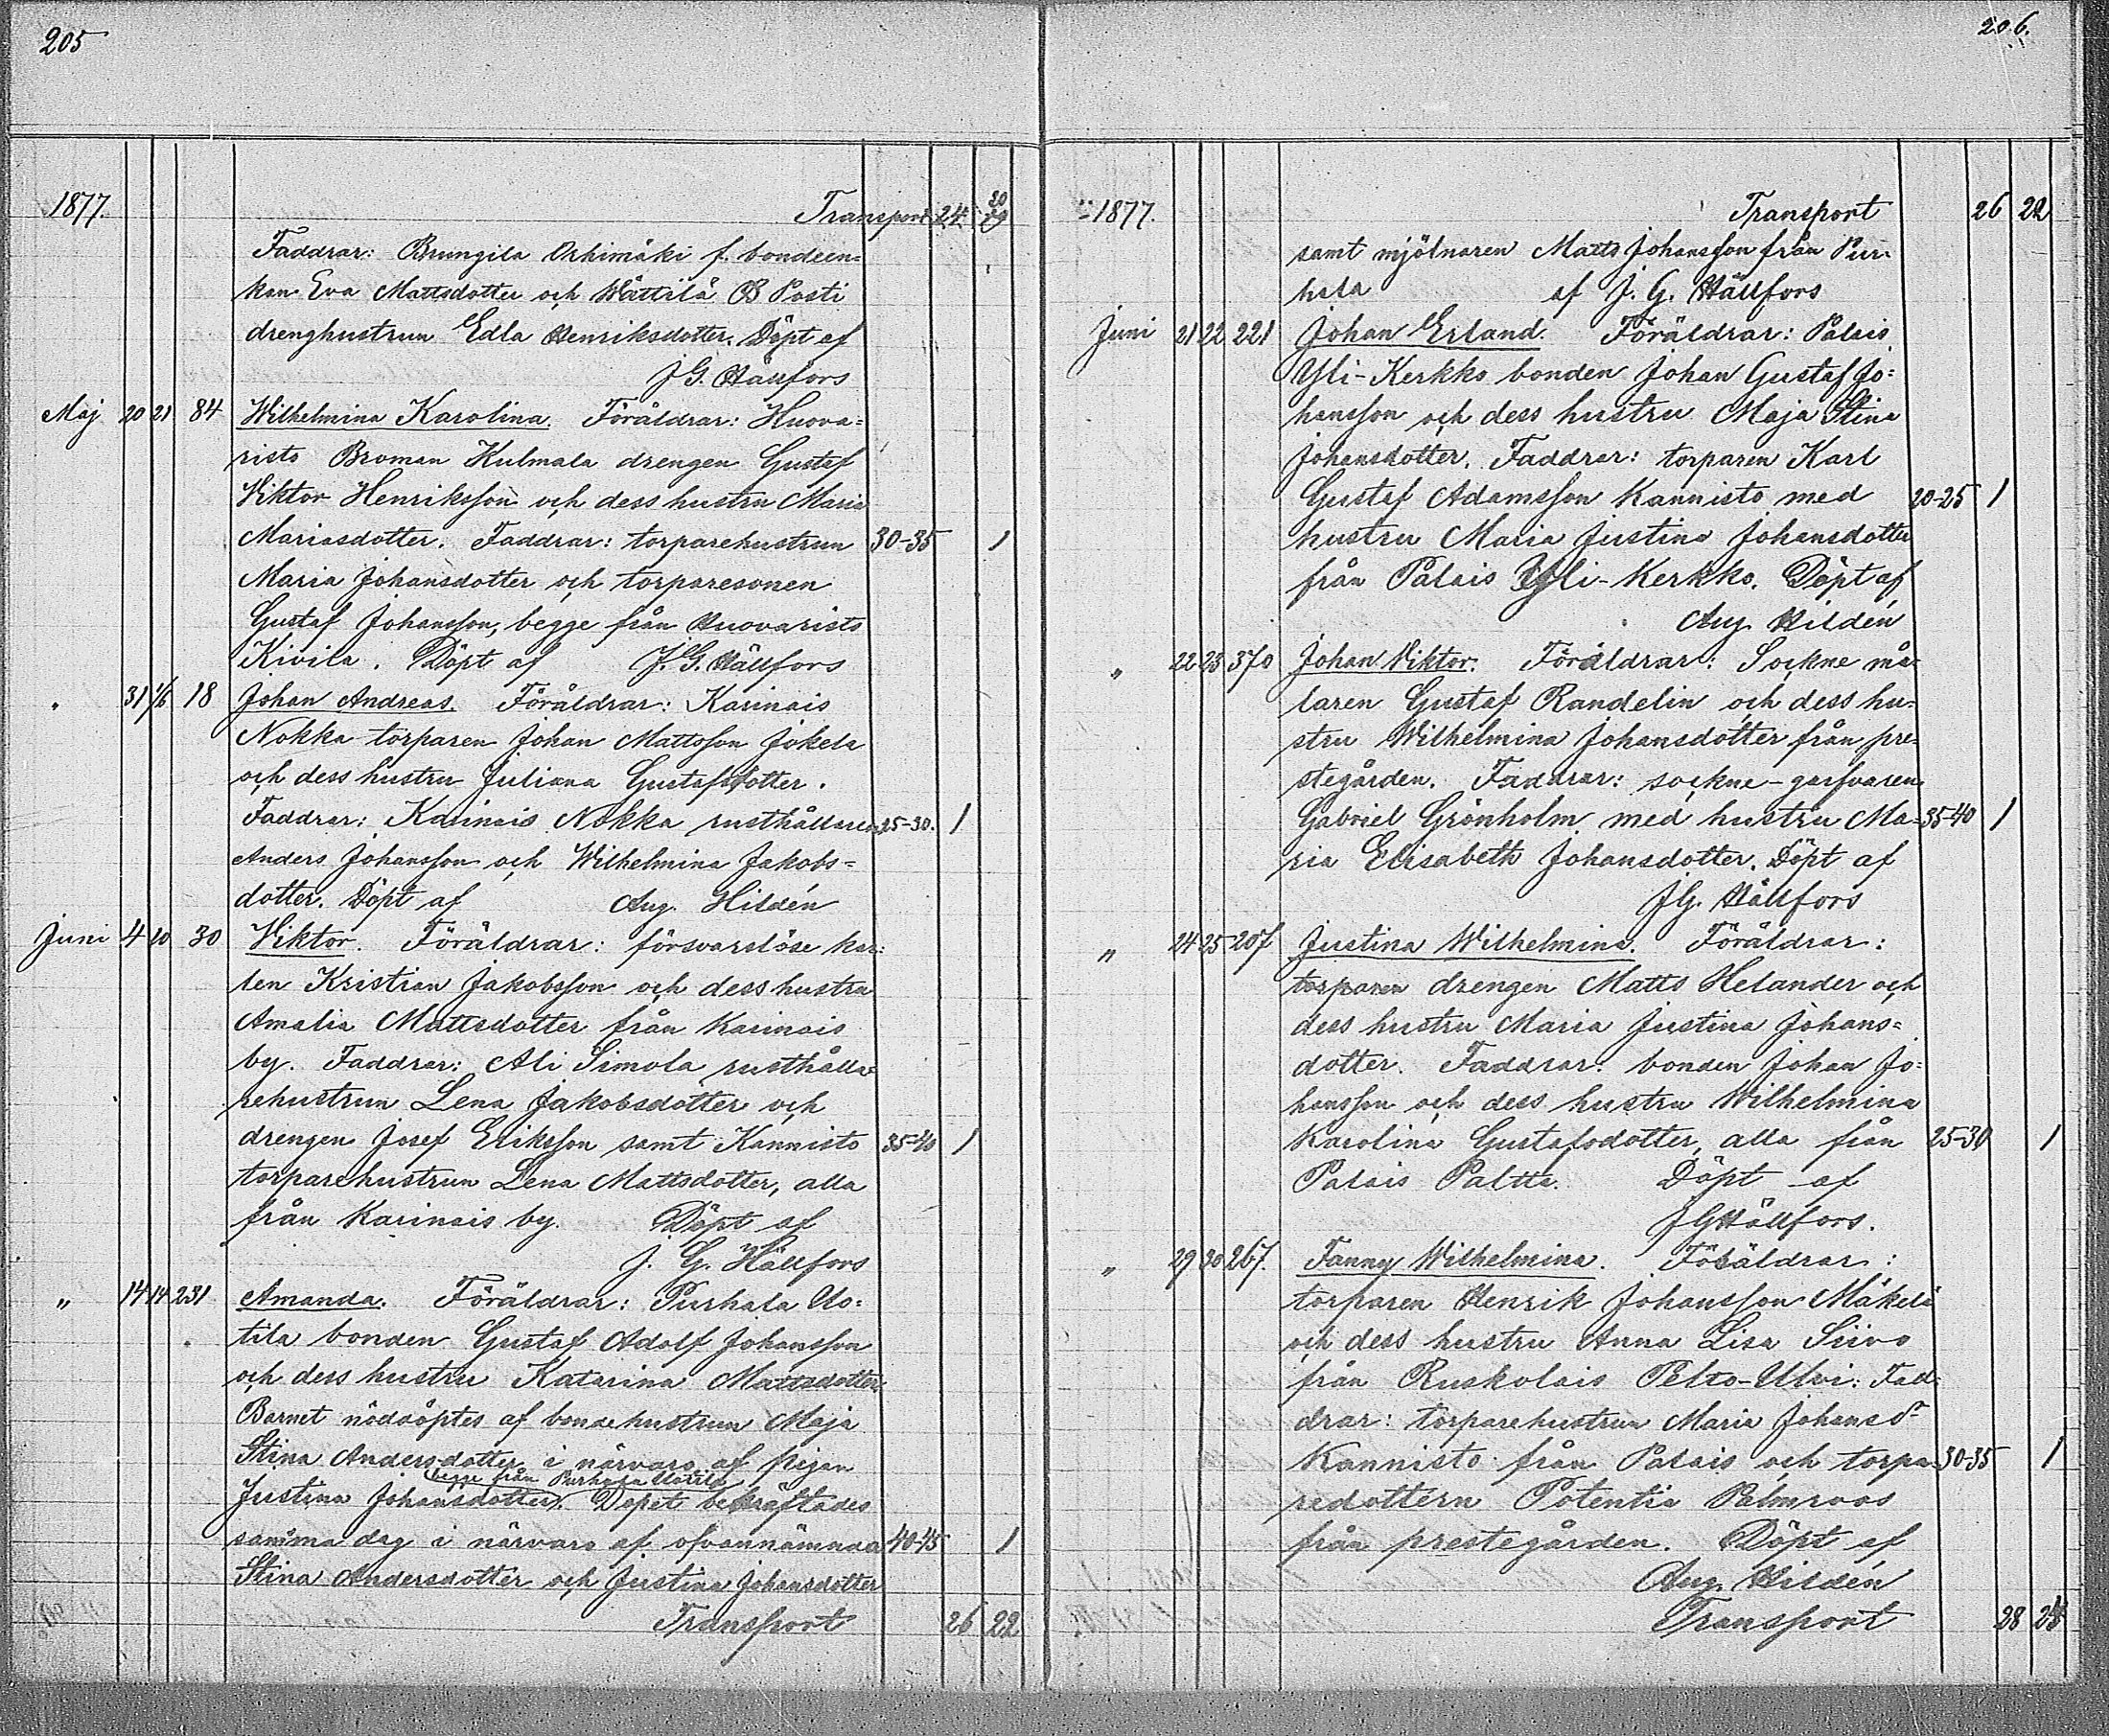 205
1877. Transport 24 20
Faddrar: Brungila Orhimäki f. bondeen=
kan Eva Mattsdotter och Wättilä B Posti
drenghustrun Edla Henriksdotter. Döpt af
J G. Hällfors
Maj 20 21 84 Wilhelmina Karolina. Föräldrar: Huova=
risto Broman Kulmala drengen Gustaf
Viktor Henriksson och dess hustru Maria
Mariasdotter. Faddrar: torparehustrun 30-35 1
Maria Johansdotter och torparesonen
Gustaf Johansson, begge från Huovaristo
Kivila. Döpt af J. G. Hällfors
" 31 1/6 18 Johan Andreas. Föräldrar: Karinais
Nokka torparen Johan Mattsson Jokela
och dess hustru Juliana Gustafsdotter.
Faddrar: Karinais Nokka rusthållaren 25-30. 1
Anders Johansson och Wilhelmina Jakobs=
dotter. Döpt af Aug. Hildén
Juni 4 10 30 Viktor. Föräldrar: försvarslöse kar=
len Kristian Jakobsson och dess hustru
Amalia Mattsdotter från Karinais
by. Faddrar: Ali Simola rusthålla=
rehustrun Lena Jakobsdotter och
drengen Josef Eriksson samt Kannisto 35-40 1
torparehustrun Lena Mattsdotter, alla
från Karinais by. Döpt af
J. G. Hällfors
" 14 14 231 Amanda. Föräldrar: Purhala Uo=
tila bonden Gustaf Adolf Johansson
och dess hustru Katarina Mattsdotter
Barnet nöddöptes af bondehustrun Maja
Stina Andersdotter i närvaro af pigan
begge från Purhala Uotila
Justina Johansdotter. Dopet bekräftades
samma dag i närvaro af ofvannämnda 40-45 1
Stina Andersdotter och Justina Johansdotter
Transport 26 22
206.
1877. Transport 26 22
samt mjölnaren Matts Johansson från Pur=
hala af J. G. Hällfors
Juni 21 22 221 Johan Erland. Föräldrar: Palais
Yli-Kerkko bonden Johan Gustaf Jo=
hansson och dess hustru Maja Stina
Johansdotter. Faddrar: torparen Karl
Gustaf Adamsson Kannisto med 20-25 1
hustru Maria Justina Johansdotter
från Palais Yli-Kerkko. Döpt af
Aug. Hildén
" 22 23 370 Johan Viktor. Föräldrar: Sockne må
laren Gustaf Randelin och dess hu=
stru Wilhelmina Johansdotter från pre=
stegården. Faddrar: sockne-garfvaren
Gabriel Grönholm med hustru Ma= 35-40 1
ria Elisabeth Johansdotter. Döpt af
J G. Hällfors
" 24 25 207 Justina Wilhelmina. Föräldrar:
torparen drengen Matts Helander och
dess hustru Maria Justina Johans=
dotter. Faddrar: bonden Johan Jo=
hansson och dess hustru Wilhelmina
Karolina Gustafsdotter, alla från 25-30 1
Palais Paltta. Döpt af
J G Hällfors.
" 29 30 267. Fanny Wilhelmina. Föräldrar:
torparen Henrik Johansson Mäkelä
och dess hustru Anna Lisa Siivo
från Ruskolais Pelto-Ulvi. Fad=
drar: torparehustrun Maria Johansdr
Kannisto från Palais och torpa= 30-35 1
redottern Potentia Palmroos
från prestegården. Döpt af
Aug. Hildén
Transport 28 24